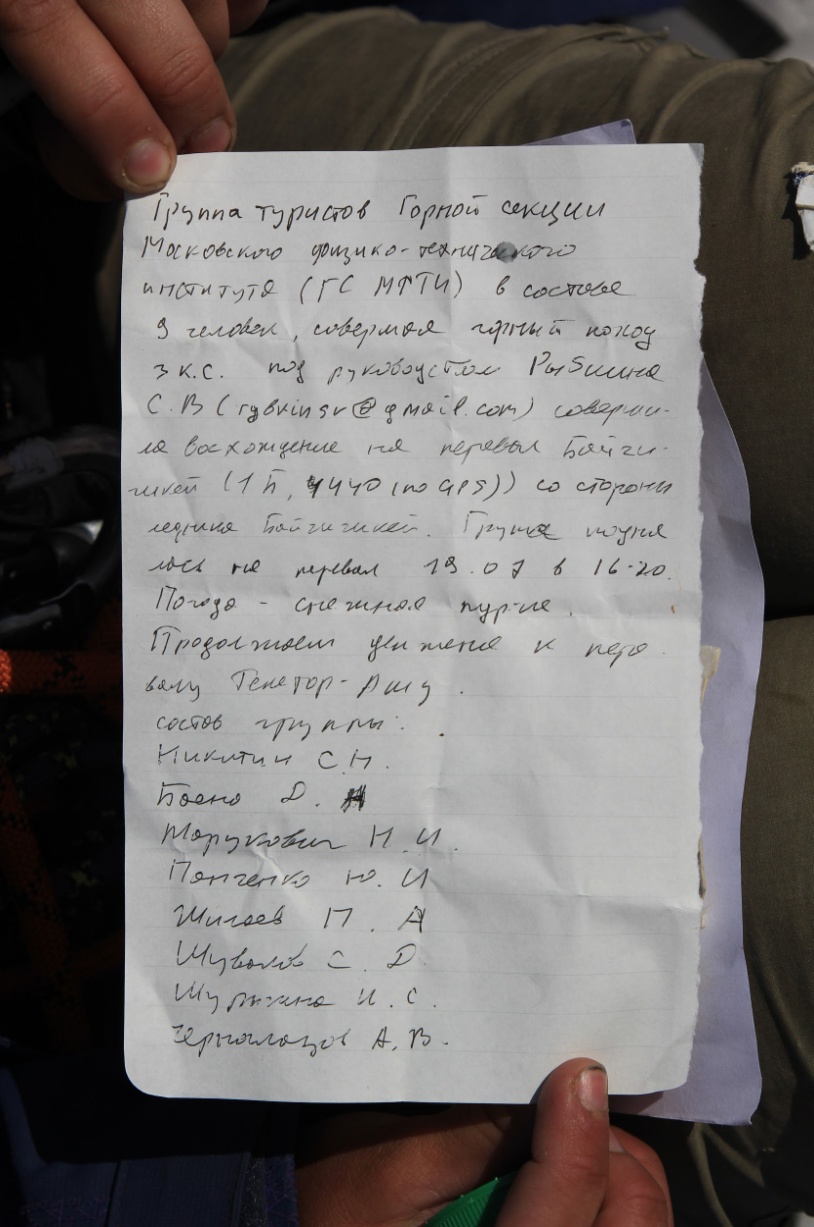 Группа туристов Горной секции
Московского физико-технического
института (ГС МФТИ) в составе
9 человек, совершая горный поход
3 к.с. под руководством Рыбкина
С.В (rybkinsv@gmail.com) соверши-
ла восхождение на перевал Байги-
чикей (1Б, 4440 (по GPS)) со стороны
ледника Байгичикей. Группа подня
лась на перевал 19.07 в 16-20.
Погода - снежная пурга.
Продолжаем движение к пере
валу Текетор-Ашу.
состав группы:
Никитин С.Н.
Д.
Марукович Н.И.
Панченко Ю.И
Шигаев П.А
Шувалов С.Д.
И.С.
А.В.